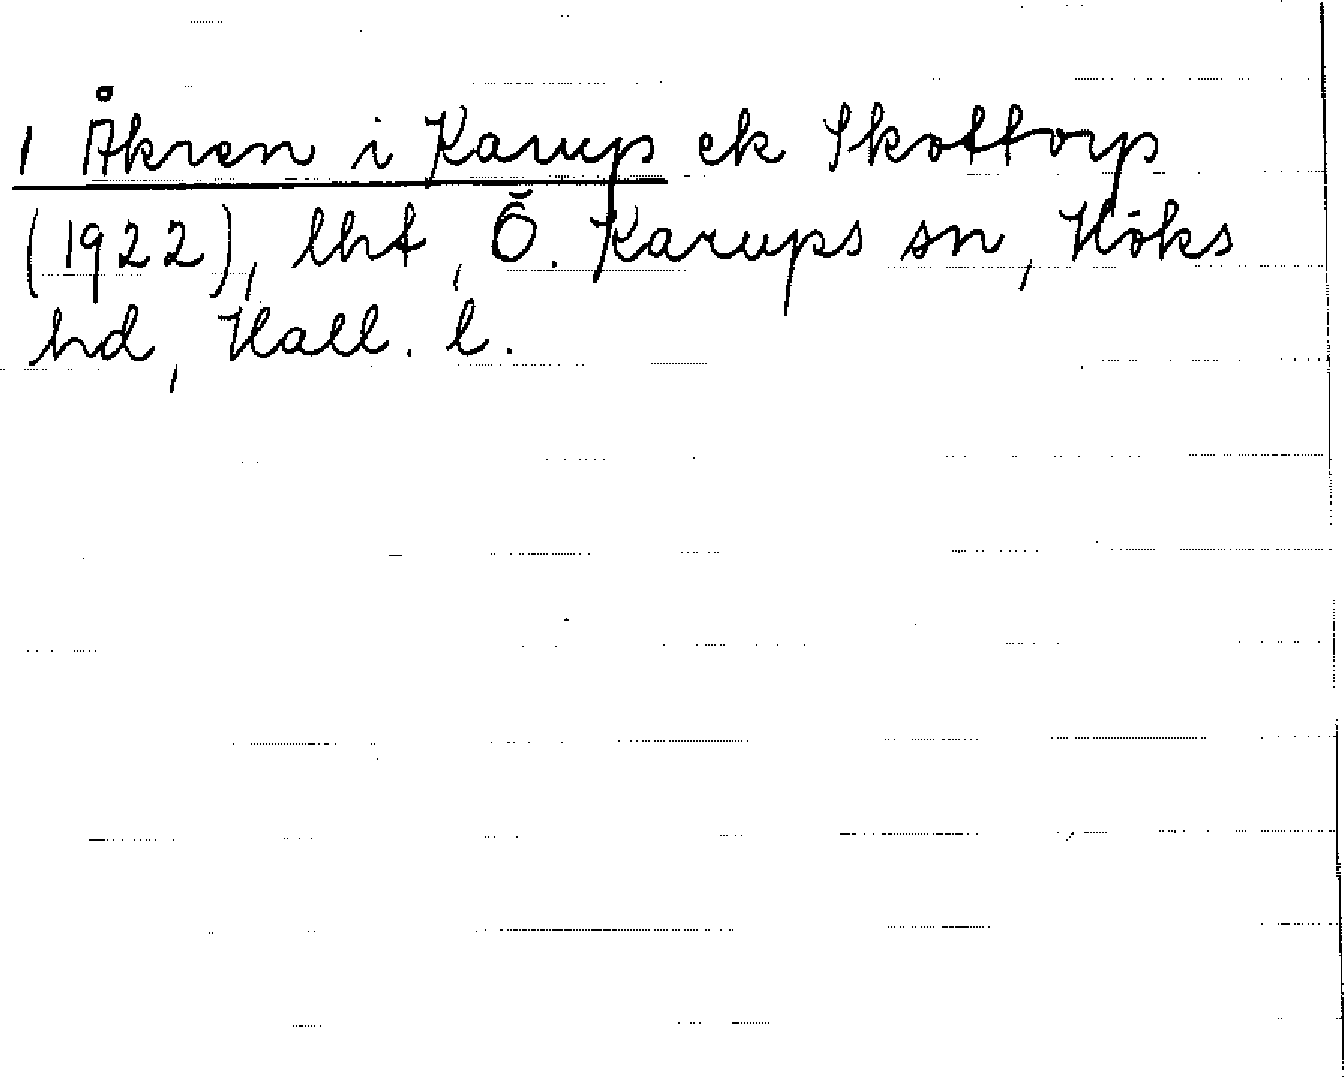 1 Åkren i Karup ek Skottorp
(1922), lht, Ö. Karups sn, Höks
hd, Hall. l.